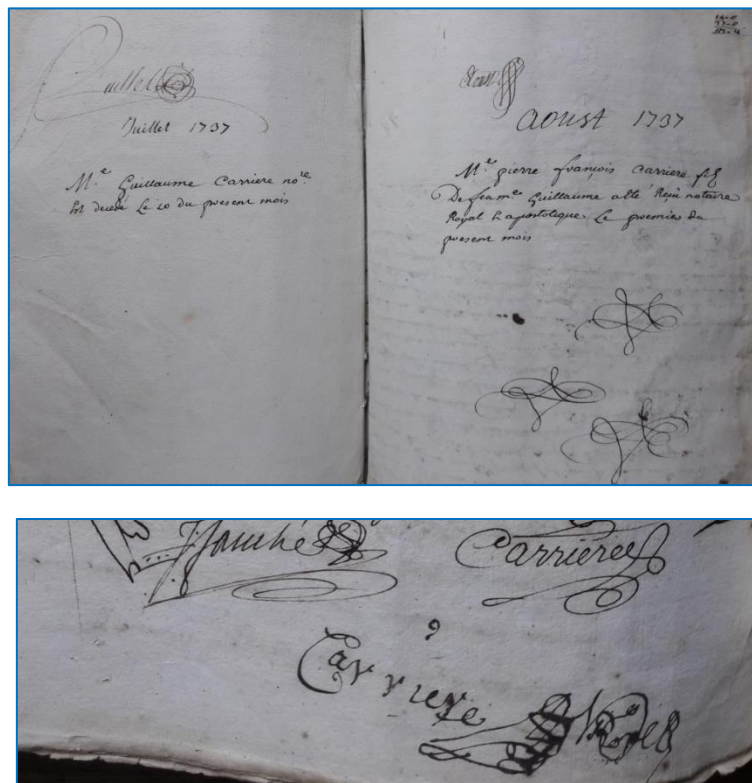 Juillet
Juillet 1737
Me Guillaume Carriere nore
Est decedé Le 20 du present mois
Aoust
aoust 1737
Me pierre françois Carriere fils
De feu me Guillaume a été Reçu notaire
Royal & apostolique Le premier du
present mois
Carriere
Carriere